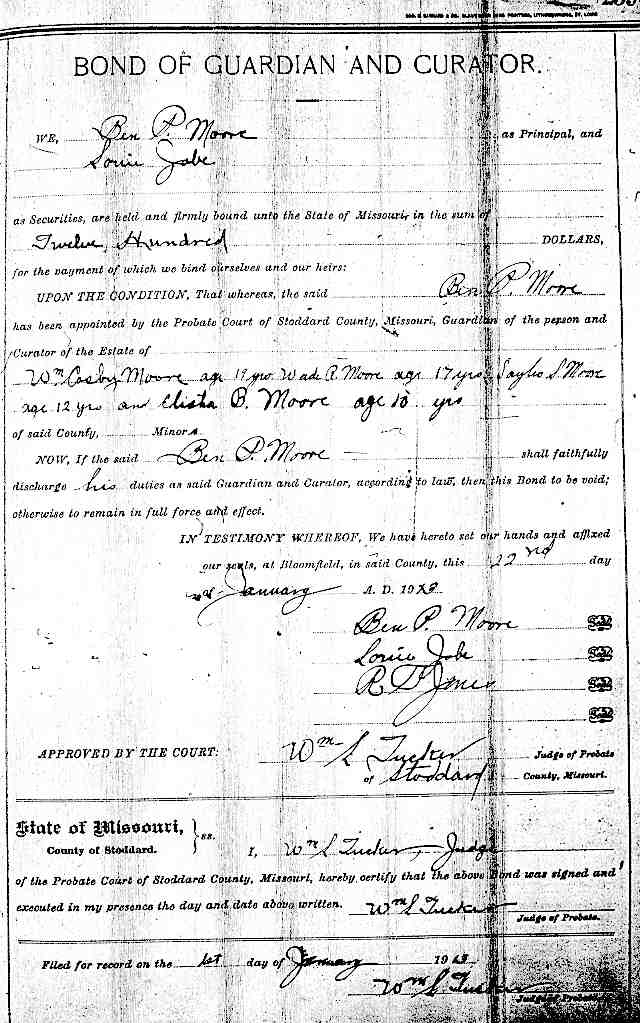 BOND OF GUARDIAN AND CURATOR.
WE, Ben P. Moore as Principal, and
Lonie Jobe
as Securities, are held and firmly bound unto the State of Missouri, in the sum of
Twelve Hundred DOLLARS,
for the payment of which we bind ourselves and our heirs:
UPON THE CONDITION, That whereas, the said Ben P. Moore
has been appointed by the Probate Court of Stoddard County, Missouri, Guardian of the person and
Curator of the Estate of
Wm Cosby Moore age 19 yrs. Wade R. Moore age 17 yrs S. Moore
age 12 yrs and Elisha B. Moore age yrs
of said County, Minors
NOW, If the said Ben P. Moore shall faithfully
discharge his duties as said Guardian and Curator, according to law, then this Bond to be void;
otherwise to remain in full force and effect.
IN TESTIMONY WHEREOF, We have hereto set our hands and affixed
our seals, at Bloomfield, in said County, this 22nd day
of January A. D. 1923
Ben P. Moore Seal
Lonie Jobe Seal
R Jones Seal
Seal
APPROVED BY THE COURT: Wm L Tucker Judge of Probate
of Stoddard County, Missouri.
State of Missouri, } ss.
County of Stoddard. I, Wm L Tucker, Judge
of the Probate Court of Stoddard County, Missouri, hereby certify that the above Bond was signed and
executed in my presence the day and date above written. Wm L Tucker
Judge of Probate.
Filed for record on the 1st day of January 1923
Wm L Tucker
Judge of Probate